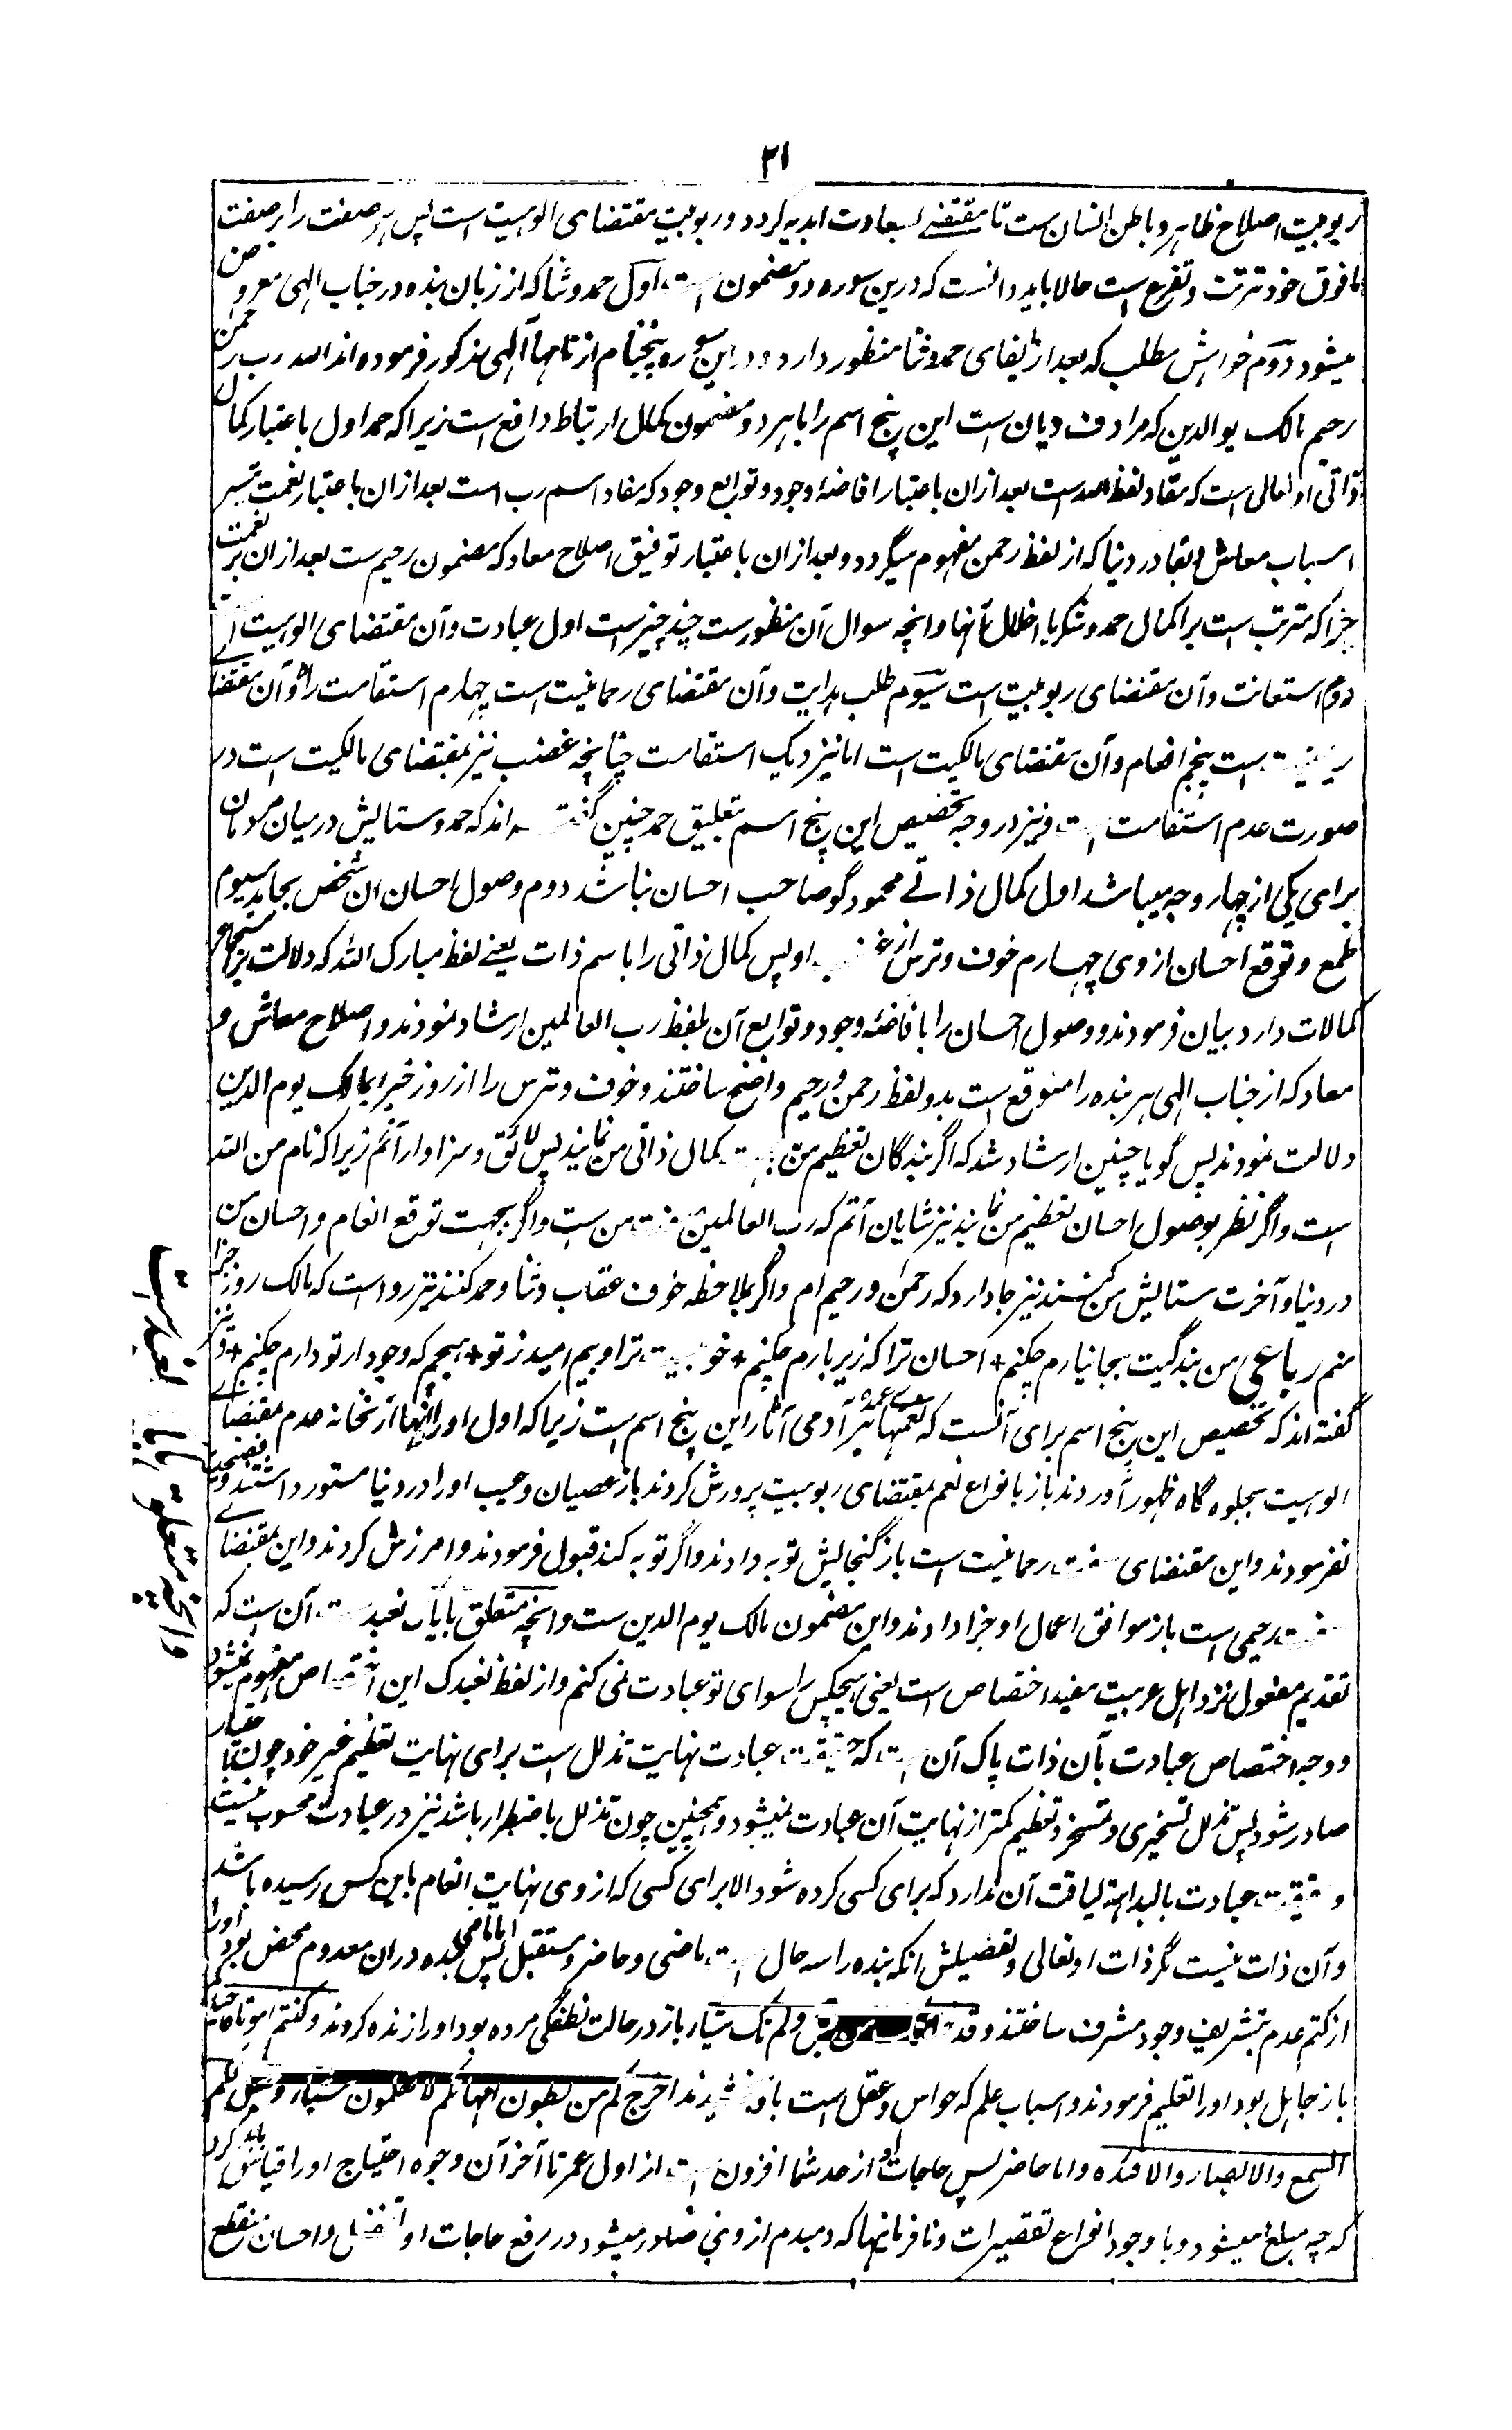 ۲۱
ربوبیت اصلاح ظاهر و باطن انسان ست تا مقتضی سعادت ابدیه گردد و ربوبیت مقتضای الوهیت است پس هر صفت را بر صفت
ما فوق خود ترتب و تفرع است حالا باید دانست که درین سوره دو مضمون است اول حمد و ثنا که از زبان بنده در جناب الهی معروض
میشود دوم خواهش مطلب که بعد از ایفای حمد و ثنا منظور دارد و در این سوره پنج نام از نامهای الهی مذکور فرموده اند الله رب رحمن
رحیم مالک یوم الدین که مرادف دیان است این پنج اسم را با هر دو مضمون کمال ارتباط واقع است زیرا که حمد اول باعتبار کمال
ذاتی او تعالی است که مفاد لفظ الله است بعد ازان باعتبار افاضۀ وجود و توابع وجود که مفاد اسم رب است بعد ازان باعتبار نعمت تیسیر
اسباب معاش و بقا در دنیا که از لفظ رحمن مفهوم میگردد و بعد ازان باعتبار توفیق اصلاح معاد که مضمون رحیم ست بعد ازان بر نعمت
جزا که مترتب است بر اکمال حمد و شکر یا اخلال بآنها و انچه سوال آن منظورست چند چیز است اول عبادت و آن مقتضای الوهیت است
دوم استعانت و آن مقتضای ربوبیت است سیوم طلب هدایت و آن مقتضای رحمانیت است چهارم استقامت راه و آن مقتضای
رحیمیت است پنجم انعام و آن مقتضای مالکیت است اما نیز دیک استقامت چنانچه غضب نیز مقتضای مالکیت است در
صورت عدم استقامت است و نیز در وجه تخصیص این پنج اسم بتعلیق حمد چنین گفته اند که حمد و ستایش درمیان مردمان
برای یکی از چهار وجه میباشد اول کمال ذاتے محمود گو صاحب احسان نباشد دوم وصول احسان ان شخص بحامد سیوم
طمع و توقع احسان از وی چهارم خوف و ترس از غضب او پس کمال ذاتی را باسم ذات یعنے لفظ مبارک الله که دلالت بر استجماع
کمالات دارد بیان فرمودند و وصول احسان را بافاضۀ وجود و توابع آن بلفظ رب العالمین ارشاد نمودند و اصلاح معاش و
معاد که از جناب الهی هر بنده را متوقع است بدو لفظ رحمن و رحیم واضح ساختند و خوف و ترس را از روز جزا بمالک یوم الدین
دلالت نمودند پس گویا چنین ارشاد شد که اگر بندگان تعظیم من بجهت کمال ذاتی من نمایند پس لائق و سزاوار آنم زیرا که نام من الله
است و اگر نظر بوصول احسان تعظیم من نمایند نیز شایان آنم که رب العالمین صفت من ست و اگر بجهت توقع انعام و احسان من
در دنیا و آخرت ستایش من کنند نیز جا دارد که رحمن و رحیم ام و اگر بملاحظه خوف عقاب و ثنا و حمد کنند نیز رواست که مالک روز جزا
منم رباعی من بندگیت بجا نیارم چکنم + احسان ترا که زیر بارم چکنم + خو ترا و بیم امید ز تو + هیچم که وجود از تو دارم چکنم + و نیز
گفته اند که تخصیص این پنج اسم برای آنست که نعمتهای عمده بر آدمی آثار این پنج اسم است زیرا که اول او را از نهانخانه عدم بمقتضای
الوهیت بجلوه گاه ظهور آوردند باز بانواع نعم بمقتضای ربوبیت پرورش کردند باز عصیان و عیب او را در دنیا مستور داشتند و فضیحت
نفرمودند و این مقتضای صفت رحمانیت است باز گنجایش توبه دادند و اگر توبه کند قبول فرمودند و امرزش کردند و این بمقتضای
صفت رحیمی است باز موافق اعمال او جزا دادند و این مضمون مالک یوم الدین ست و انچه متعلق بایاک نعبد ست آن ست که
تقدیم مفعول نزد اهل عربیت مفید اختصاص است یعنی هیچکس را سوای تو عبادت نمی کنم و از لفظ نعبدک این اختصاص مفهوم نمیشود
و وجه اختصاص عبادت بآن ذات پاک آن است که حقیقت عبادت نهایت تذلل است برای نهایت تعظیم غیر خود چون باختیار
صادر شود پس تذلل تسخیری و تمسخر و تعظیم کمتر از نهایت آن عبادت نمیشود و همچنین چون تذلل باضطرار باشد نیز در عبادت محسوب نیست
و حقیقت عبادت بالبداهة لیاقت آن ندارد که برای کسی کرده شود الا برای کسی که از وی نهایت انعام باین کس رسیده باشد
و آن ذات نیست مگر ذات او تعالی و تفصیلش انکه بنده را سه حال است ماضی و حاضر و مستقبل اما ماضی پس بنده دران معدوم محض بود او را
از کتم عدم بتشریف وجود مشرف ساختند و قد خلقتک من قبل و لم تک شیئا باز در حالت نطفگی مرده بود او را زنده کردند و کنتم امواتا فاحیاکم
باز جاهل بود او را تعلیم فرمودند و اسباب علم که حواس و عقل است باو بخشیدند اخرجکم من بطون امهاتکم لا تعلمون شیئا و جعل لکم
السمع و الابصار و الافئده و اما حاضر پس حاجات او از حد شما افزون است از اول عمر تا آخر آن وجوه احتیاج او را قیاس باید کرد
که چه مبلغ میشود و با وجود انواع تقصیرات و نافرمانیها که دمبدم از وی صادر میشود در رفع حاجات او تفضل و احسان منقطع
وانچه متعلق بایاک نعبد ست